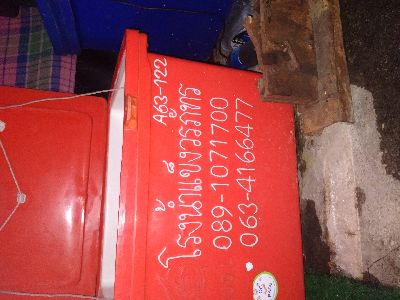 A63-122
โรงน้ำแข็งวรภัทร
089-1071700
063-4166477